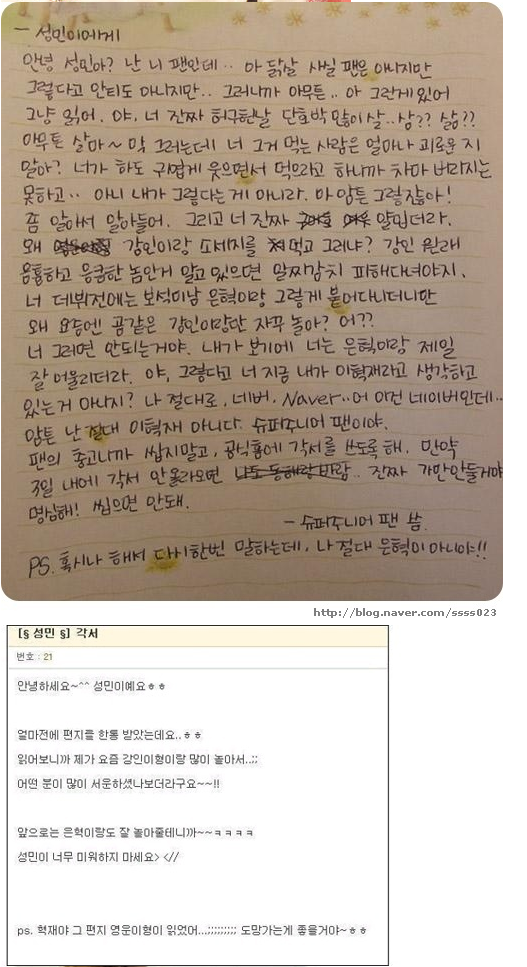 - 성민이에게
안녕 성민아? 난 니 팬인데.. 아 닭살 사실 팬은 아니지만
그렇다고 안티도 아니지만.. 그러니까 아무튼.. 아 그런게 있어
그냥 읽어. 야, 너 진짜 허구헌날 단호박 많이 살..삼?? 삶??
아무튼 살마~ 막 그러는데 너 그거 먹는 사람은 얼마나 괴로운 지
알아? 너가 하도 귀엽게 웃으면서 먹으라고 하니까 차마 버리지는
못하고.. 아니 내가 그렇다는게 아니라. 아 암튼 그렇잖아!
쫌 알아서 알아들어. 그리고 너 진짜 얄밉더라.
왜 강인이랑 소세지를 쳐먹고 그러냐? 강인 원래
음흉하고 응큼한 놈인거 알고 있으면 알찌감치 피해다녀야지.
너 데뷔전에는 보석미남 은혁이랑 그렇게 붙어다니더니만
왜 요즘엔 곰같은 강인이랑만 자꾸 놀아? 어??
너 그러면 안되는거야. 내가 보기에 너는 은혁이랑 제일
잘 어울리더라. 야, 그렇다고 너 지금 내가 이혁재라고 생각하고
있는거 아니지? 나 절대로, 네버, Naver.. 어 이건 네이버인데..
암튼 난 절대 이혁재 아니다. 슈퍼주니어 팬이야.
팬의 충고니까 씹지말고, 공식홈에 각서를 쓰도록 해. 만약
3일 내에 각서 안올라오면 나도 동해랑 바람.. 진짜 가만안둘거야
명심해! 씹으면 안돼.
- 슈퍼주니어 팬 씀.
PS. 혹시나 해서 다시한번 말하는데, 나 절대 은혁이 아니야!!
http://blog.naver.com/ssss023
[§ 성민 §] 각서
번호 : 21
안녕하세요~^^ 성민이예요ㅎㅎ
얼마전에 편지를 한통 받았는데요..ㅎㅎ
읽어보니까 제가 요즘 강인이형이랑 많이 놀아서..;;
어떤 분이 많이 서운하셨나보더라구요~~!!
앞으로는 은혁이랑도 잘 놀아줄테니까~~ㅋㅋㅋㅋ
성민이 너무 미워하지 마세요> <//
ps. 혁재야 그 편지 영운이형이 읽었어...;;;;;;;;; 도망가는게 좋을거야~ㅎㅎ